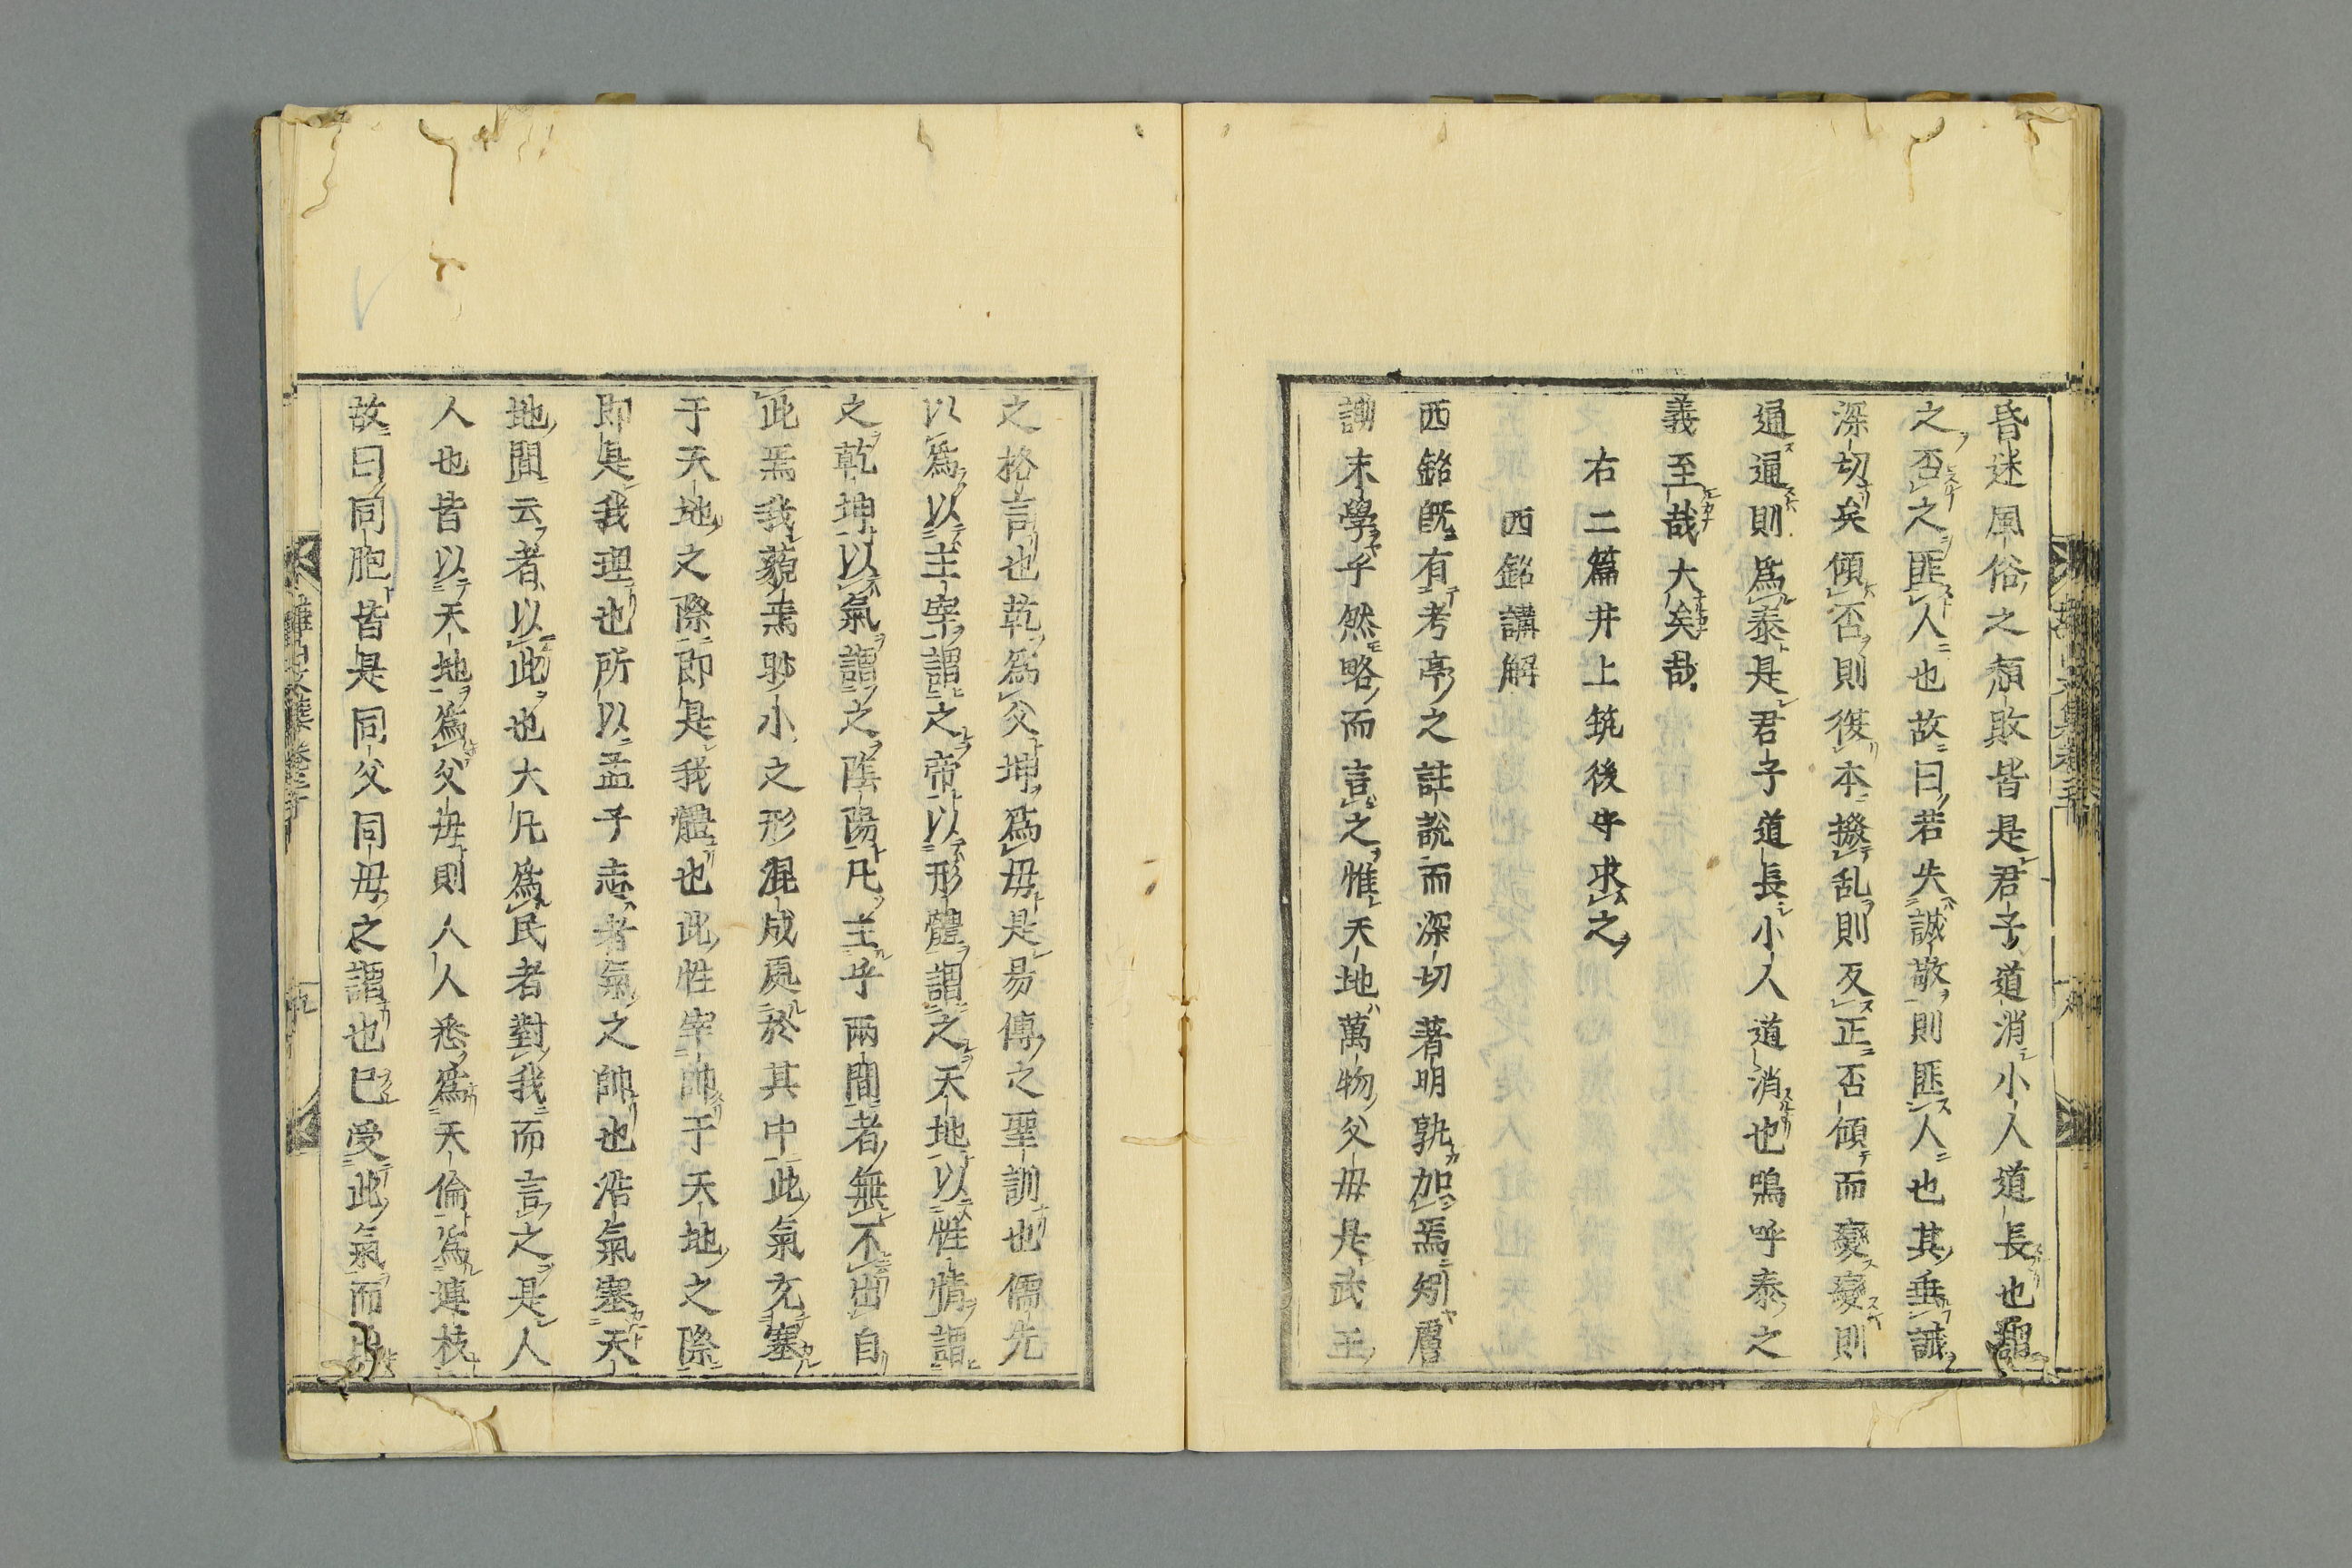 昏迷風俗之頽敗皆是君子道消小人道長也謂
之否之匪人也故曰若失誠敬則匪人也其垂誡
深切矣傾否則復本撥乱則反正否傾而變變則
通通則爲泰是君子道長小人道消也嗚呼泰之
義至哉大矣哉
右二篇井上筑後守求之
西銘講解
西銘既有考亭之註説而深切著明孰加焉矧膚
謭末學乎然略而言之惟天地萬物父毋是武王
之格言也乾爲父坤爲毋是易傳之聖訓也儒先
以爲以主宰謂之帝以形體謂之天地以性情謂
之乾坤以氣謂之陰陽凡主乎兩間者無不出自
此焉我藐焉眇小之形混成處於其中此氣充塞
于天地之際即是我體也此性宰帥于天地之際
即是我理也所以孟子志者氣之帥也浩氣塞天
地間云者以此也大凡爲民者對我而言之是人
人也皆以天地爲父毋則人人悉爲天倫爲連枝
故曰同胞皆是同父同毋之謂也已受此氣而